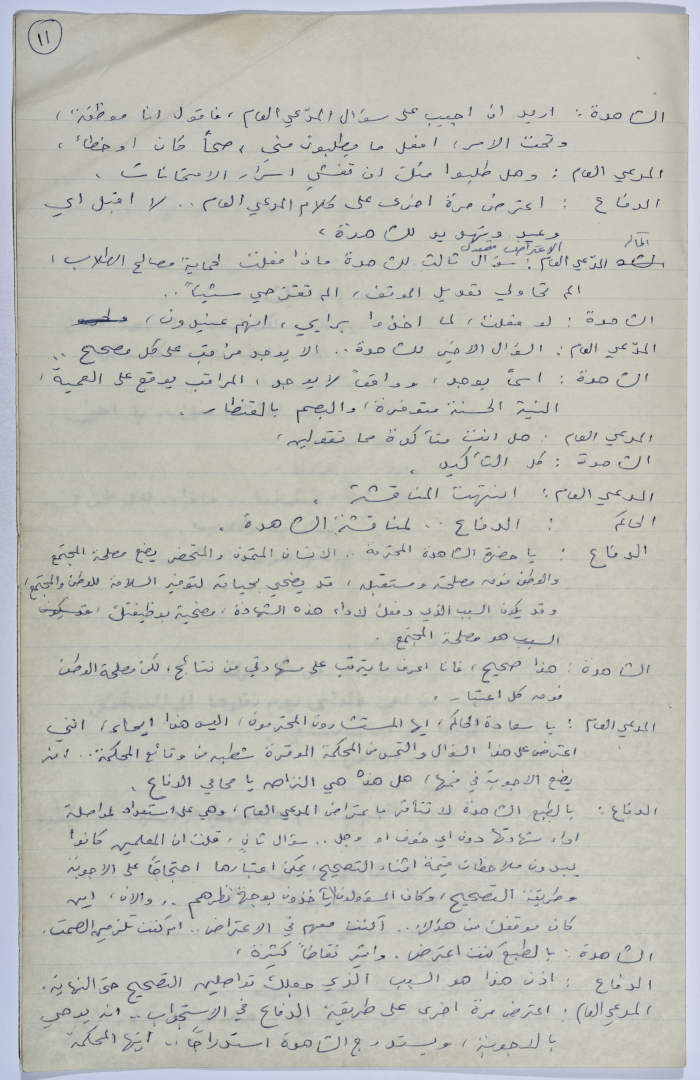 ١١
الشاهدة : اريد ان اجيب على سؤال المدّعي العام ، فاقول انا موظفة ،
وتحت الامر ، افعل ما يطلبون مني ، صحاً كان او خطأ .
المدعي العام : وهل طلبوا منك ان تفشي اسرار الامتحانات .
الدفاع : اعترض مرة اخرى على كلام المدعي العام .. لا اقبل اي
وعيد وتهديد للشاهدة .
الحاكم الاعتراض مقبول
المدّعي العام : سؤال ثالث للشاهدة ماذا فعلت لحماية مصالح الطلاب ،
الم تحاولي تعديل الموقف ، الم تقترحي شيئاً ..
الشاهدة : لو فعلت ، لما اخذوا برايي ، انهم عنيدون ،
المدّعي العام : السؤال الاخير للشاهدة .. الا يوجد مراقب على كل مصحح ..
الشاهدة : اسماً يوجد ، وواقعاً لا يوجد ، المراقب يوقع على العمية ،
النية الحسنة متوفرة ، والبصم بالقنطار .
المدعي العام : هل انت متأكدة مما تقولين ،
الشاهدة : كل التأكيد .
المدعي العام : انتهت المناقشة .
الحاكم : الدفاع .. لمناقشة الشاهدة .
الدفاع : يا حضرة الشاهدة المحترمة .. الانسان المتمدن والمتحضر يضع مصلحة المجتمع
والوطن فوق مصلحته ومستقبله ، قد يضحي بحياته لتوفير السلامة للوطن والمجتمع ،
وقد يكون السبب الذي دفعك لاداء هذه الشهادة ، مضحية بوظيفتك ،
السبب هو مصلحة المجتمع .
الشاهدة : هذا صحيح ، فانا اعرف ما يترتب على شهادتي من نتائج ، لكن مصلحة الوطن
فوق كل اعتبار .
المدعي العام : يا سعادة الحاكم ، ايها المستشارون المحترمون ، اليس هذا ايحاء ، انني
اعترض على هذا السؤال والتمس من المحكمة الموقرة شطبه من وقائع المحكمة .. انه
يضع الاجوبة في فمها ، هل هذه هي النزاهة يا محامي الدفاع .
الدفاع : بالطبع الشاهدة لا تتأثر باعتراض المدعي العام ، وهي على استعداد لمواصلة
اداء شهادتها دون اي خوف او وجل .. سؤال ثاني ، قلت ان المعلمين كانوا
يبدون ملاحظات قيمة اثناء التصحيح ، يمكن اعتبارها احتجاجاً على الاجوبة
وطريقة التصحيح ، وكان المسؤولون لا يأخذون بوجهة نظرهم .. والان ، اين
كان موقفك من هؤلاء .. اكنت معهم في الاعتراض .. ام كنت تلزمين الصمت .
الشاهدة : بالطبع كنت اعترض . واثير نقاطاً كثيرة ،
الدفاع : اذن هذا هو السبب الذي جعلك تواصلين التصحيح حتى النهاية .
المدعي العام : اعترض مرة اخرى على طريقة الدفاع في الاستجواب .. انه يوحي
بالاجوبة ، ويستدرج الشاهدة استدراجاً .. ايتها المحكمة